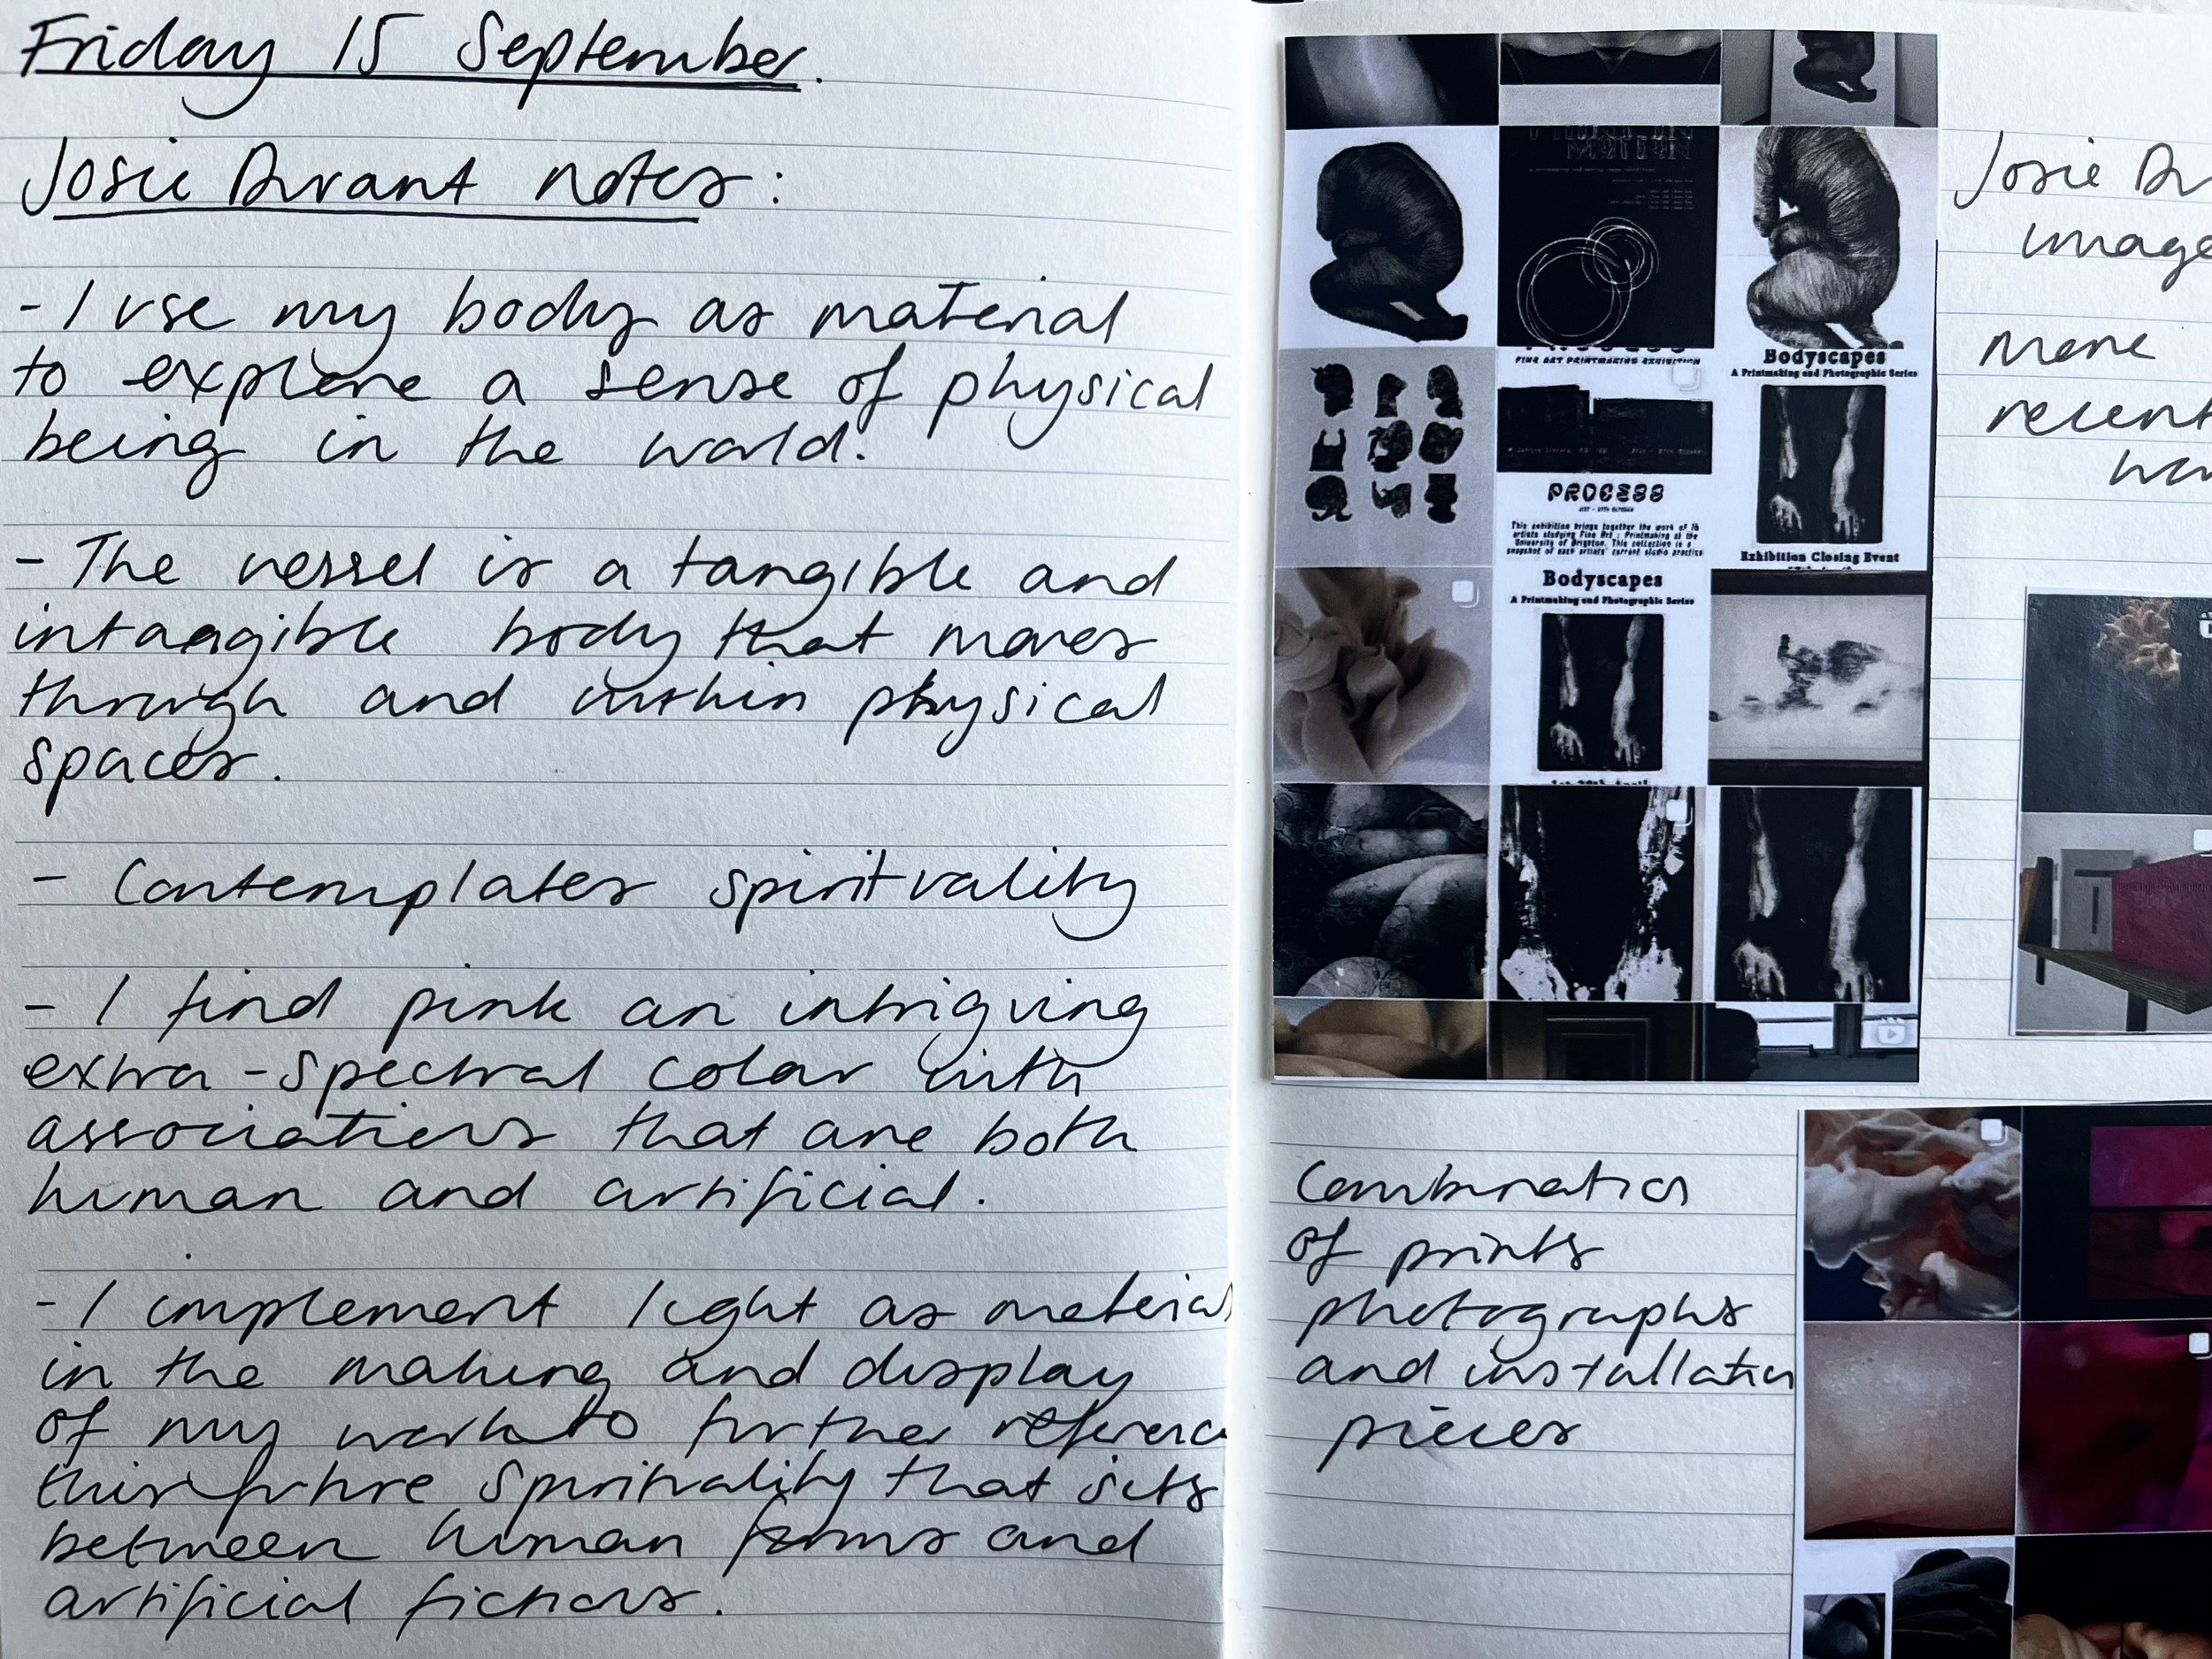 Friday 15 September.
Josie Durant notes:
- I use my body as material
to explore a sense of physical
being in the world.
- The vessel is a tangible and
intangible body that moves
through and within physical
spaces.
- Contemplates spirituality
- I find pink an intriguing
extra-spectral color with
associations that are both
human and artificial.
- I implement light as material
in the making and display
of my work to further reference
this future spirituality that sits
between human forms and
artificial fictions.
MOTION
FINE ART PRINTMAKING EXHIBITION
PROCESS
21ST - 27TH OCTOBER
This exhibition brings together the work of 16
artists studying Fine Art : Printmaking at the
University of Brighton. This collection is a
snapshot of each artists' current studio practice
Bodyscapes
A Printmaking and Photographic Series
Exhibition Closing Event
Bodyscapes
A Printmaking and Photographic Series
Josie Du
image
more
recent
Combination
of prints
photographs
and installation
pieces